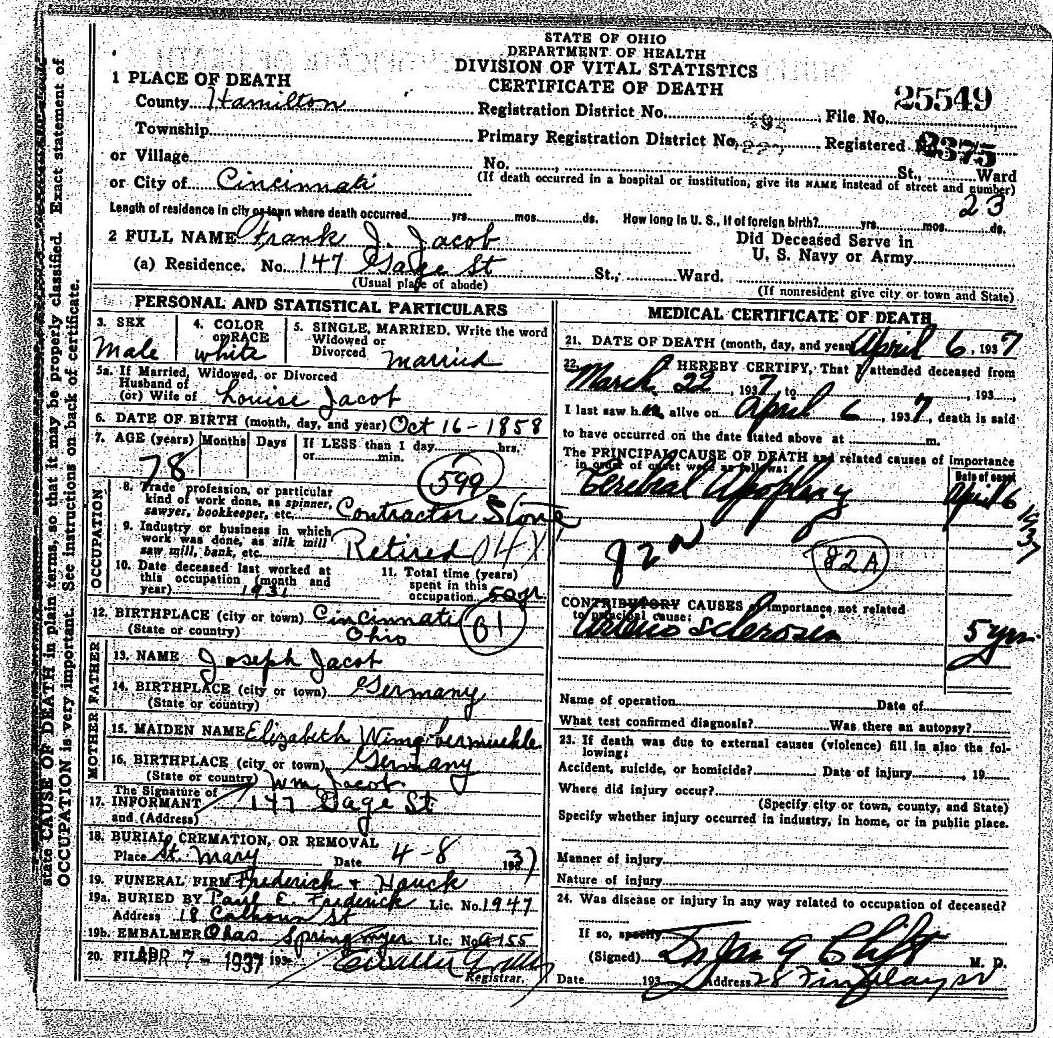 STATE OF OHIO
DEPARTMENT OF HEALTH
DIVISION OF VITAL STATISTICS
CERTIFICATE OF DEATH
1 PLACE OF DEATH
County Hamilton
Registration District No. 494 File No. 25549
Township
Primary Registration District No. 227 Registered 2375
or Village
No. St., Ward
or City of Cincinnati
(If death occurred in a hospital or institution, give its NAME instead of street and number)
23
Length of residence in city or town where death occurred yrs. mos. ds. How long in U. S., if of foreign birth? yrs. mos. ds.
2 FULL NAME Frank J. Jacob
Did Deceased Serve in
U. S. Navy or Army
(a) Residence. No. 147 Gage St St., Ward.
(Usual place of abode)
(If nonresident give city or town and State)
PERSONAL AND STATISTICAL PARTICULARS
3. SEX
Male
4. COLOR or RACE
white
5. SINGLE, MARRIED, Write the word
Widowed or
Divorced married
5a. If Married, Widowed, or Divorced
Husband of
(or) Wife of Louise Jacob
6. DATE OF BIRTH (month, day, and year) Oct 16-1858
7. AGE (years) Months Days If LESS than 1 day hrs.
or min.
78
599
8. Trade profession, or particular
kind of work done, as spinner,
sawyer, bookkeeper, etc. Contractor Stone
9. Industry or business in which
work was done, as silk mill
saw mill, bank, etc. Retired 04X
10. Date deceased last worked at
this occupation (month and
year) 1931
11. Total time (years)
spent in this
occupation 50 yr
OCCUPATION
12. BIRTHPLACE (city or town) Cincinnati
(State or country) Ohio
01
FATHER
13. NAME Joseph Jacob
14. BIRTHPLACE (city or town) Germany
(State or country)
MOTHER
15. MAIDEN NAME Elizabeth
16. BIRTHPLACE (city or town) Germany
(State or country)
The Signature of Wm. Jacob
17. INFORMANT 147 Gage St
and (Address)
18. BURIAL, CREMATION, OR REMOVAL
Place St. Mary Date 4-8 1937
19. FUNERAL FIRM Frederick & Hauck
19a. BURIED BY Paul E. Frederick Lic. No. 1947
Address 18 Calhoun St
19b. EMBALMER Chas Springmyer Lic. No. a155
20. FILED APR 7- 1937 193
Registrar.
MEDICAL CERTIFICATE OF DEATH
21. DATE OF DEATH (month, day, and year) April 6, 1937
22. I HEREBY CERTIFY, That I attended deceased from
March 22, 1937, to , 193 ,
I last saw h alive on April 6, 1937, death is said
to have occurred on the date stated above at m.
The PRINCIPAL CAUSE OF DEATH and related causes of importance
in order of onset were as follows:
Date of onset
Cerebral Apoplexy April 6
1937
82A
CONTRIBUTORY CAUSES of importance not related
to principal cause:
Arterio Sclerosis 5 yrs
Name of operation Date of
What test confirmed diagnosis? Was there an autopsy?
23. If death was due to external causes (violence) fill in also the fol-
lowing:
Accident, suicide, or homicide? Date of injury , 19
Where did injury occur?
(Specify city or town, county, and State)
Specify whether injury occurred in industry, in home, or in public place.
Manner of injury
Nature of injury
24. Was disease or injury in any way related to occupation of deceased?
If so, specify
(Signed) M. D.
Date 193 Address 28 Findlay St
state CAUSE OF DEATH in plain terms, so that it may be properly classified. Exact statement of
OCCUPATION is very important. See instructions on back of certificate.